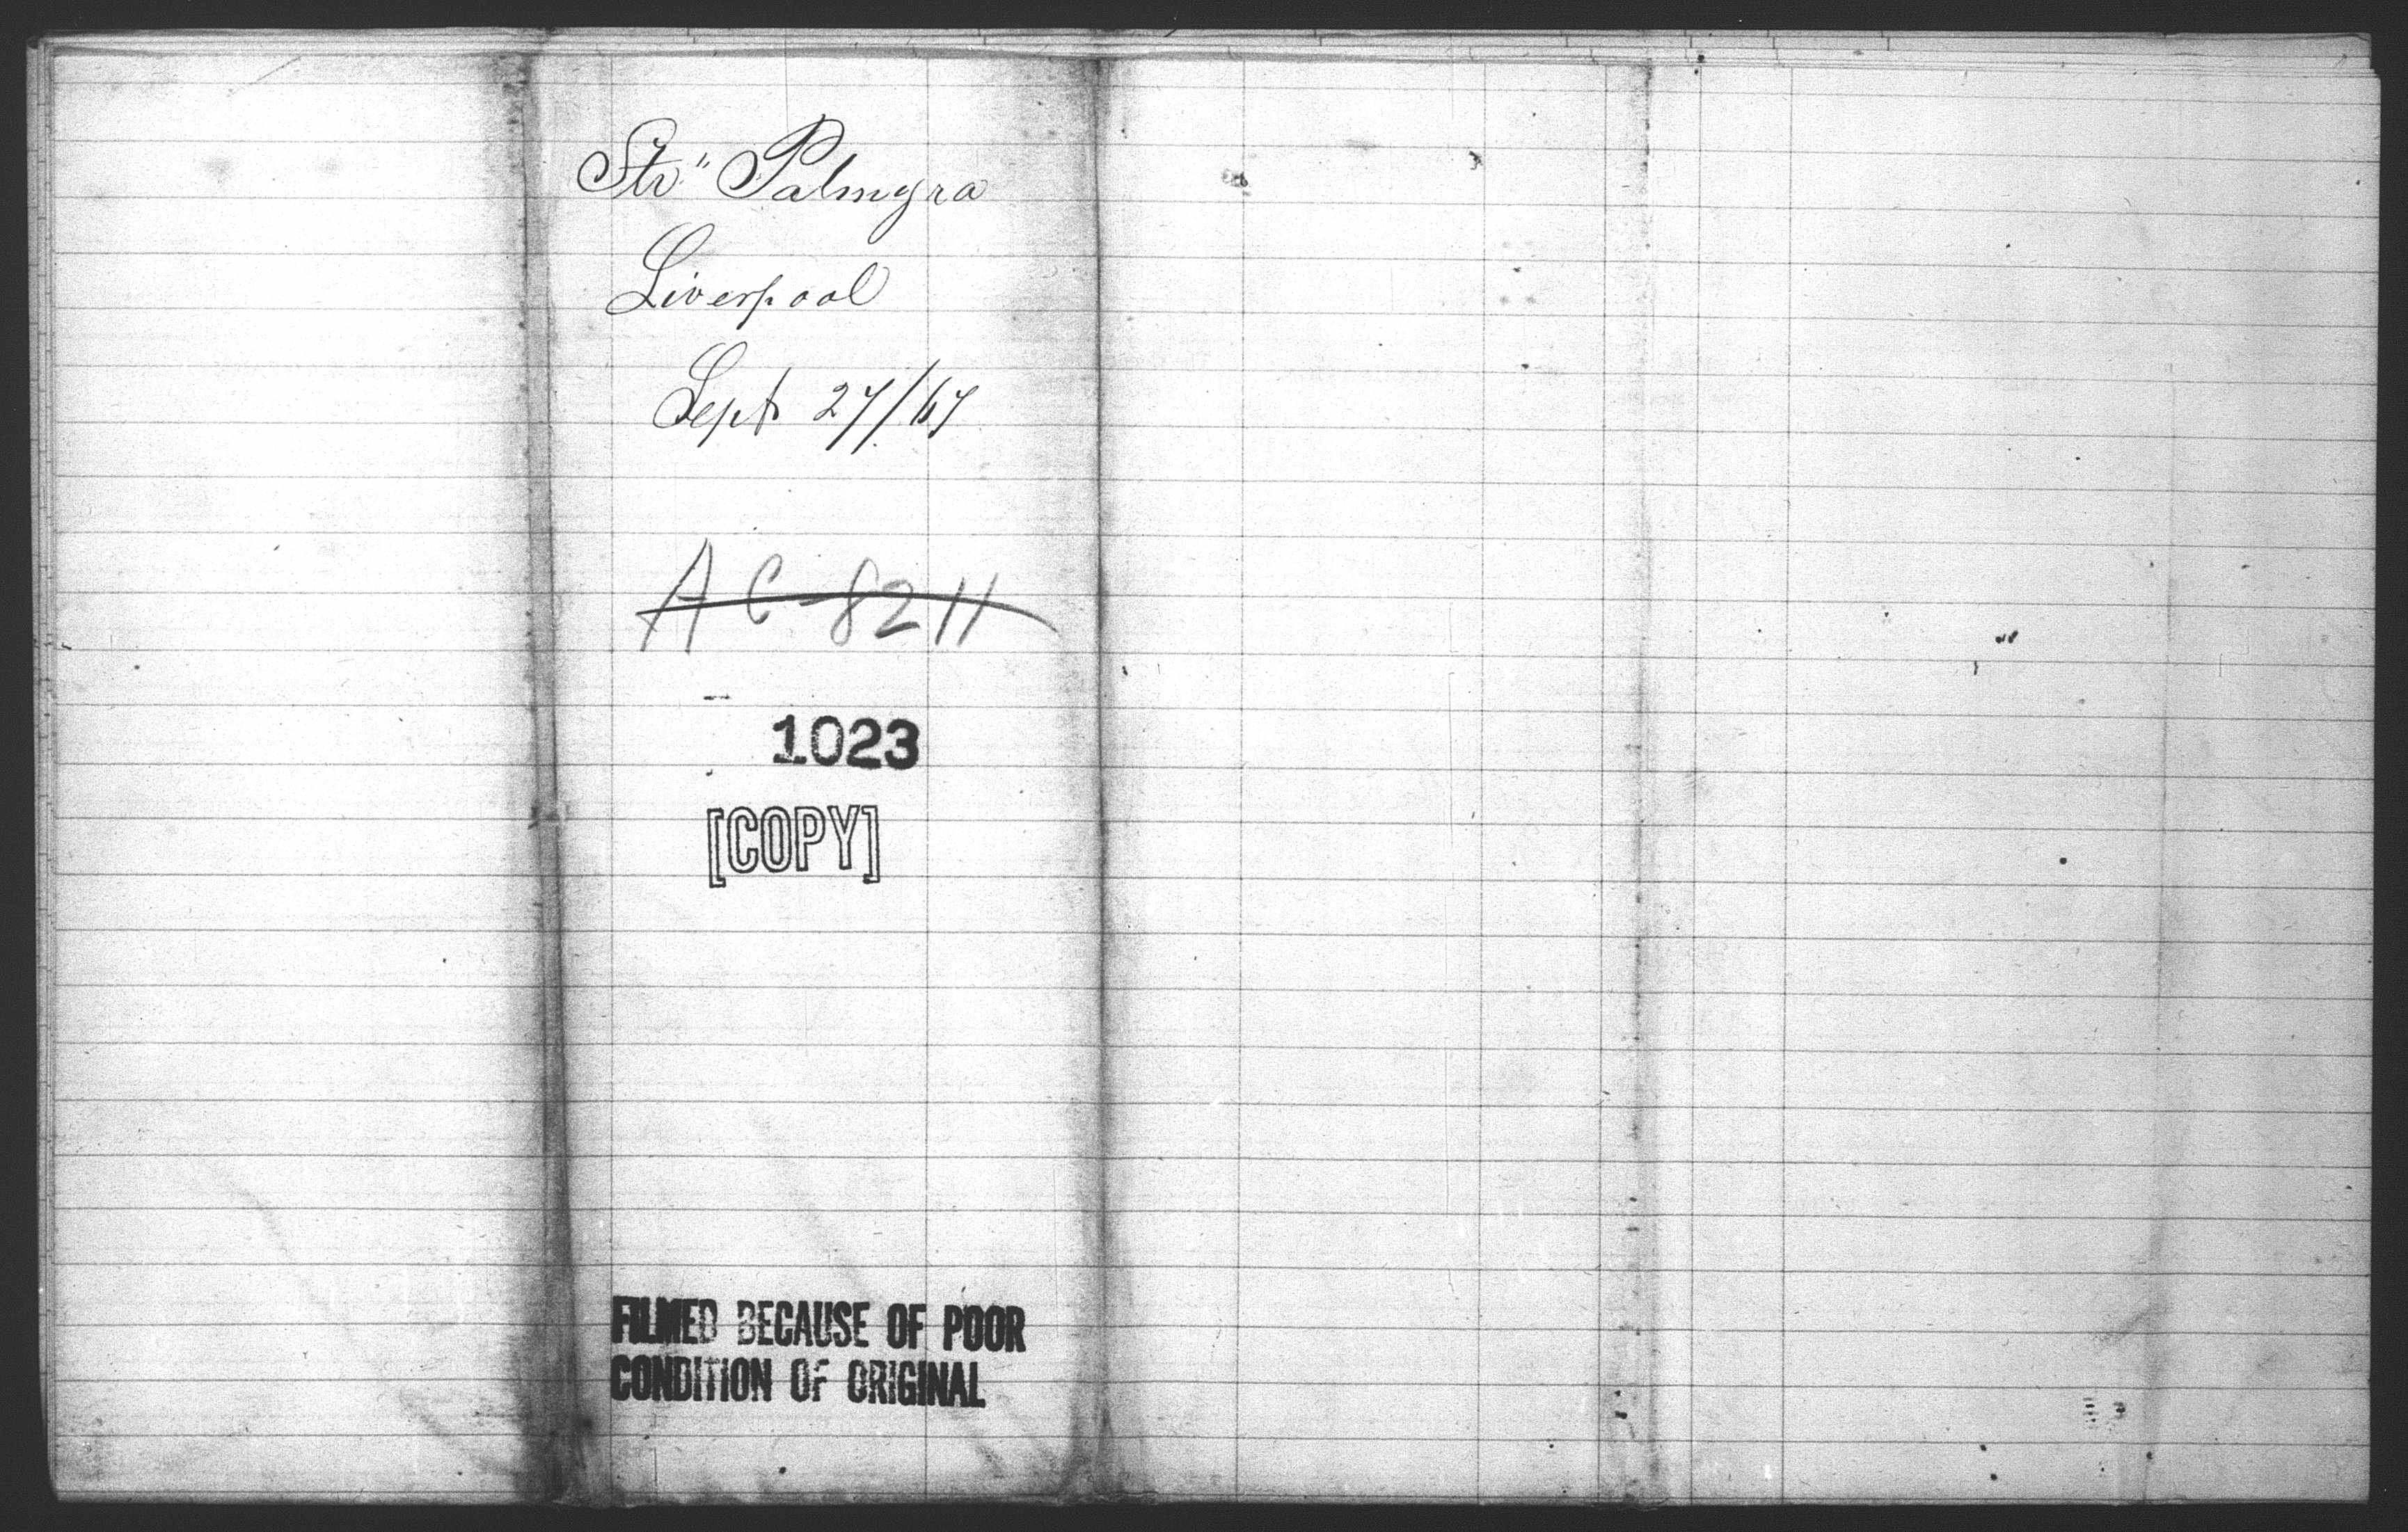 Str " Palmyra
Liverpool
Sept 27/67
AC-8211
1023
[COPY]
FILMED BECAUSE OF POOR
CONDITION OF ORIGINAL